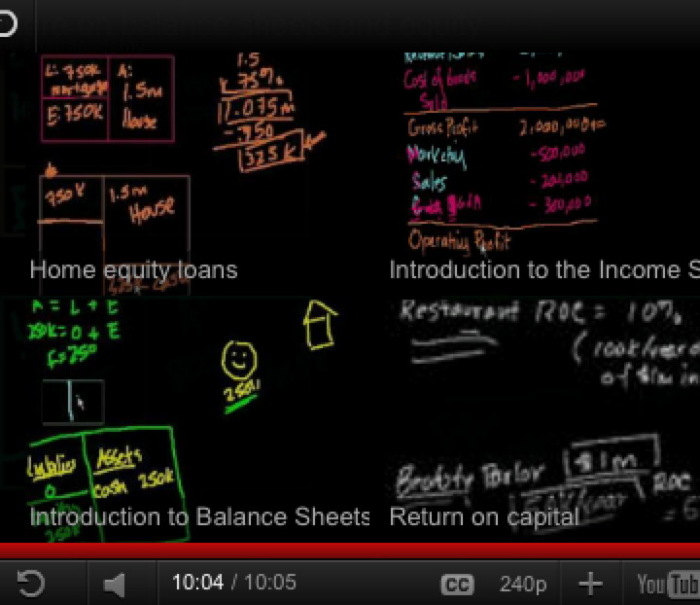 L: 750k A:
mortgage 1.5m
E: 750K House
1.5
x 75%
1.075m
- 750
325K
750K 1.5m
House
Cost of Goods -1,000,000
Sold
Gross Profit
Marketing -500,000
Sales -200,000
-300,000
Operating Profit
Home equity loans
Introduction to the Income S
A = L + E
250k = 0 + E
E = 250
250k
Assets
0 cash 250k
Introduction to Balance Sheets
Restaurant ROC = 10%
(100k/year
of $1m in
Parlor $1m
ROC
Return on capital
10:04 / 10:05
CC
240p
YouTub